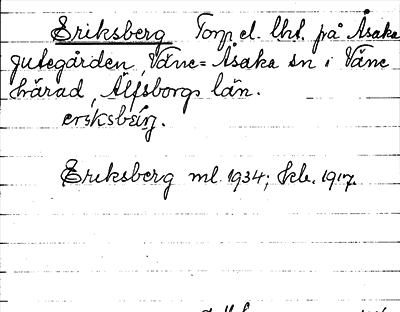 Eriksberg Torp el. lht. på Åsaka
Jutegården, Väne-Åsaka sn i Väne
härad, Älfsborgs län.
eriksbärj.
Eriksberg ml. 1934; Skb. 1917.